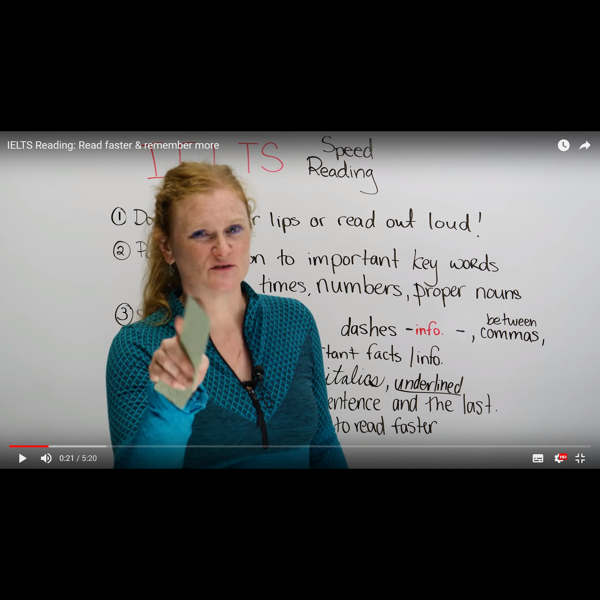 IELTS Reading: Read faster & remember more
IELTS
Speed
Reading
① Do lips or read out loud!
② to important key words
times, numbers, proper nouns
③
dashes - info. - , between commas,
facts / info.
italics, underlined
and the last.
to read faster
0:21 / 5:20
HD